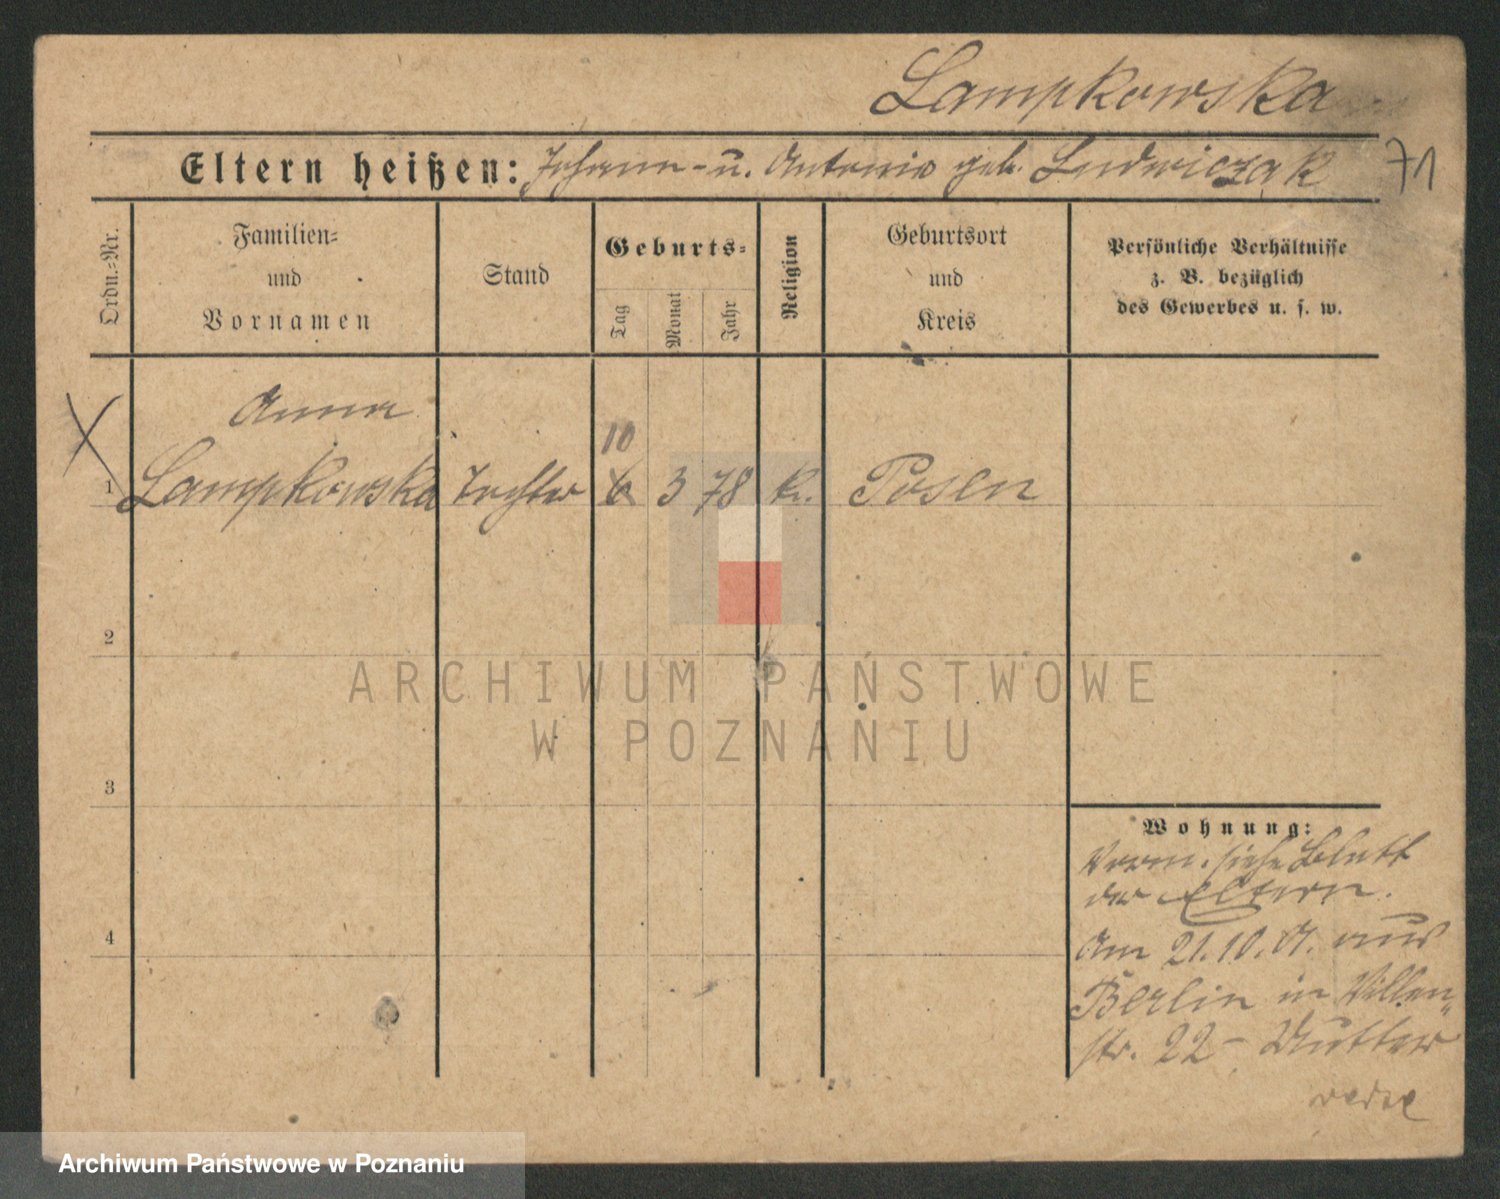 Lampkowska
Eltern heißen: Johann u. Antonie geb. Ludwiczak
71
Ordn.-Nr.
Familien-
und
Vornamen
Stand
Geburts-
Tag
Monat
Jahr
Religion
Geburtsort
und
Kreis
Persönliche Verhältnisse
z. B. bezüglich
des Gewerbes u. s. w.
Anna
10
1 Lampkowska Tochter 6 3 78 k. Posen
2
3
4
Wohnung:
Vorm. siehe Blatt
der Eltern.
Am 21.10.01. aus
Berlin in Villen-
str. 22 - Mutter
ARCHIWUM PAŃSTWOWE
W POZNANIU
Archiwum Państwowe w Poznaniu